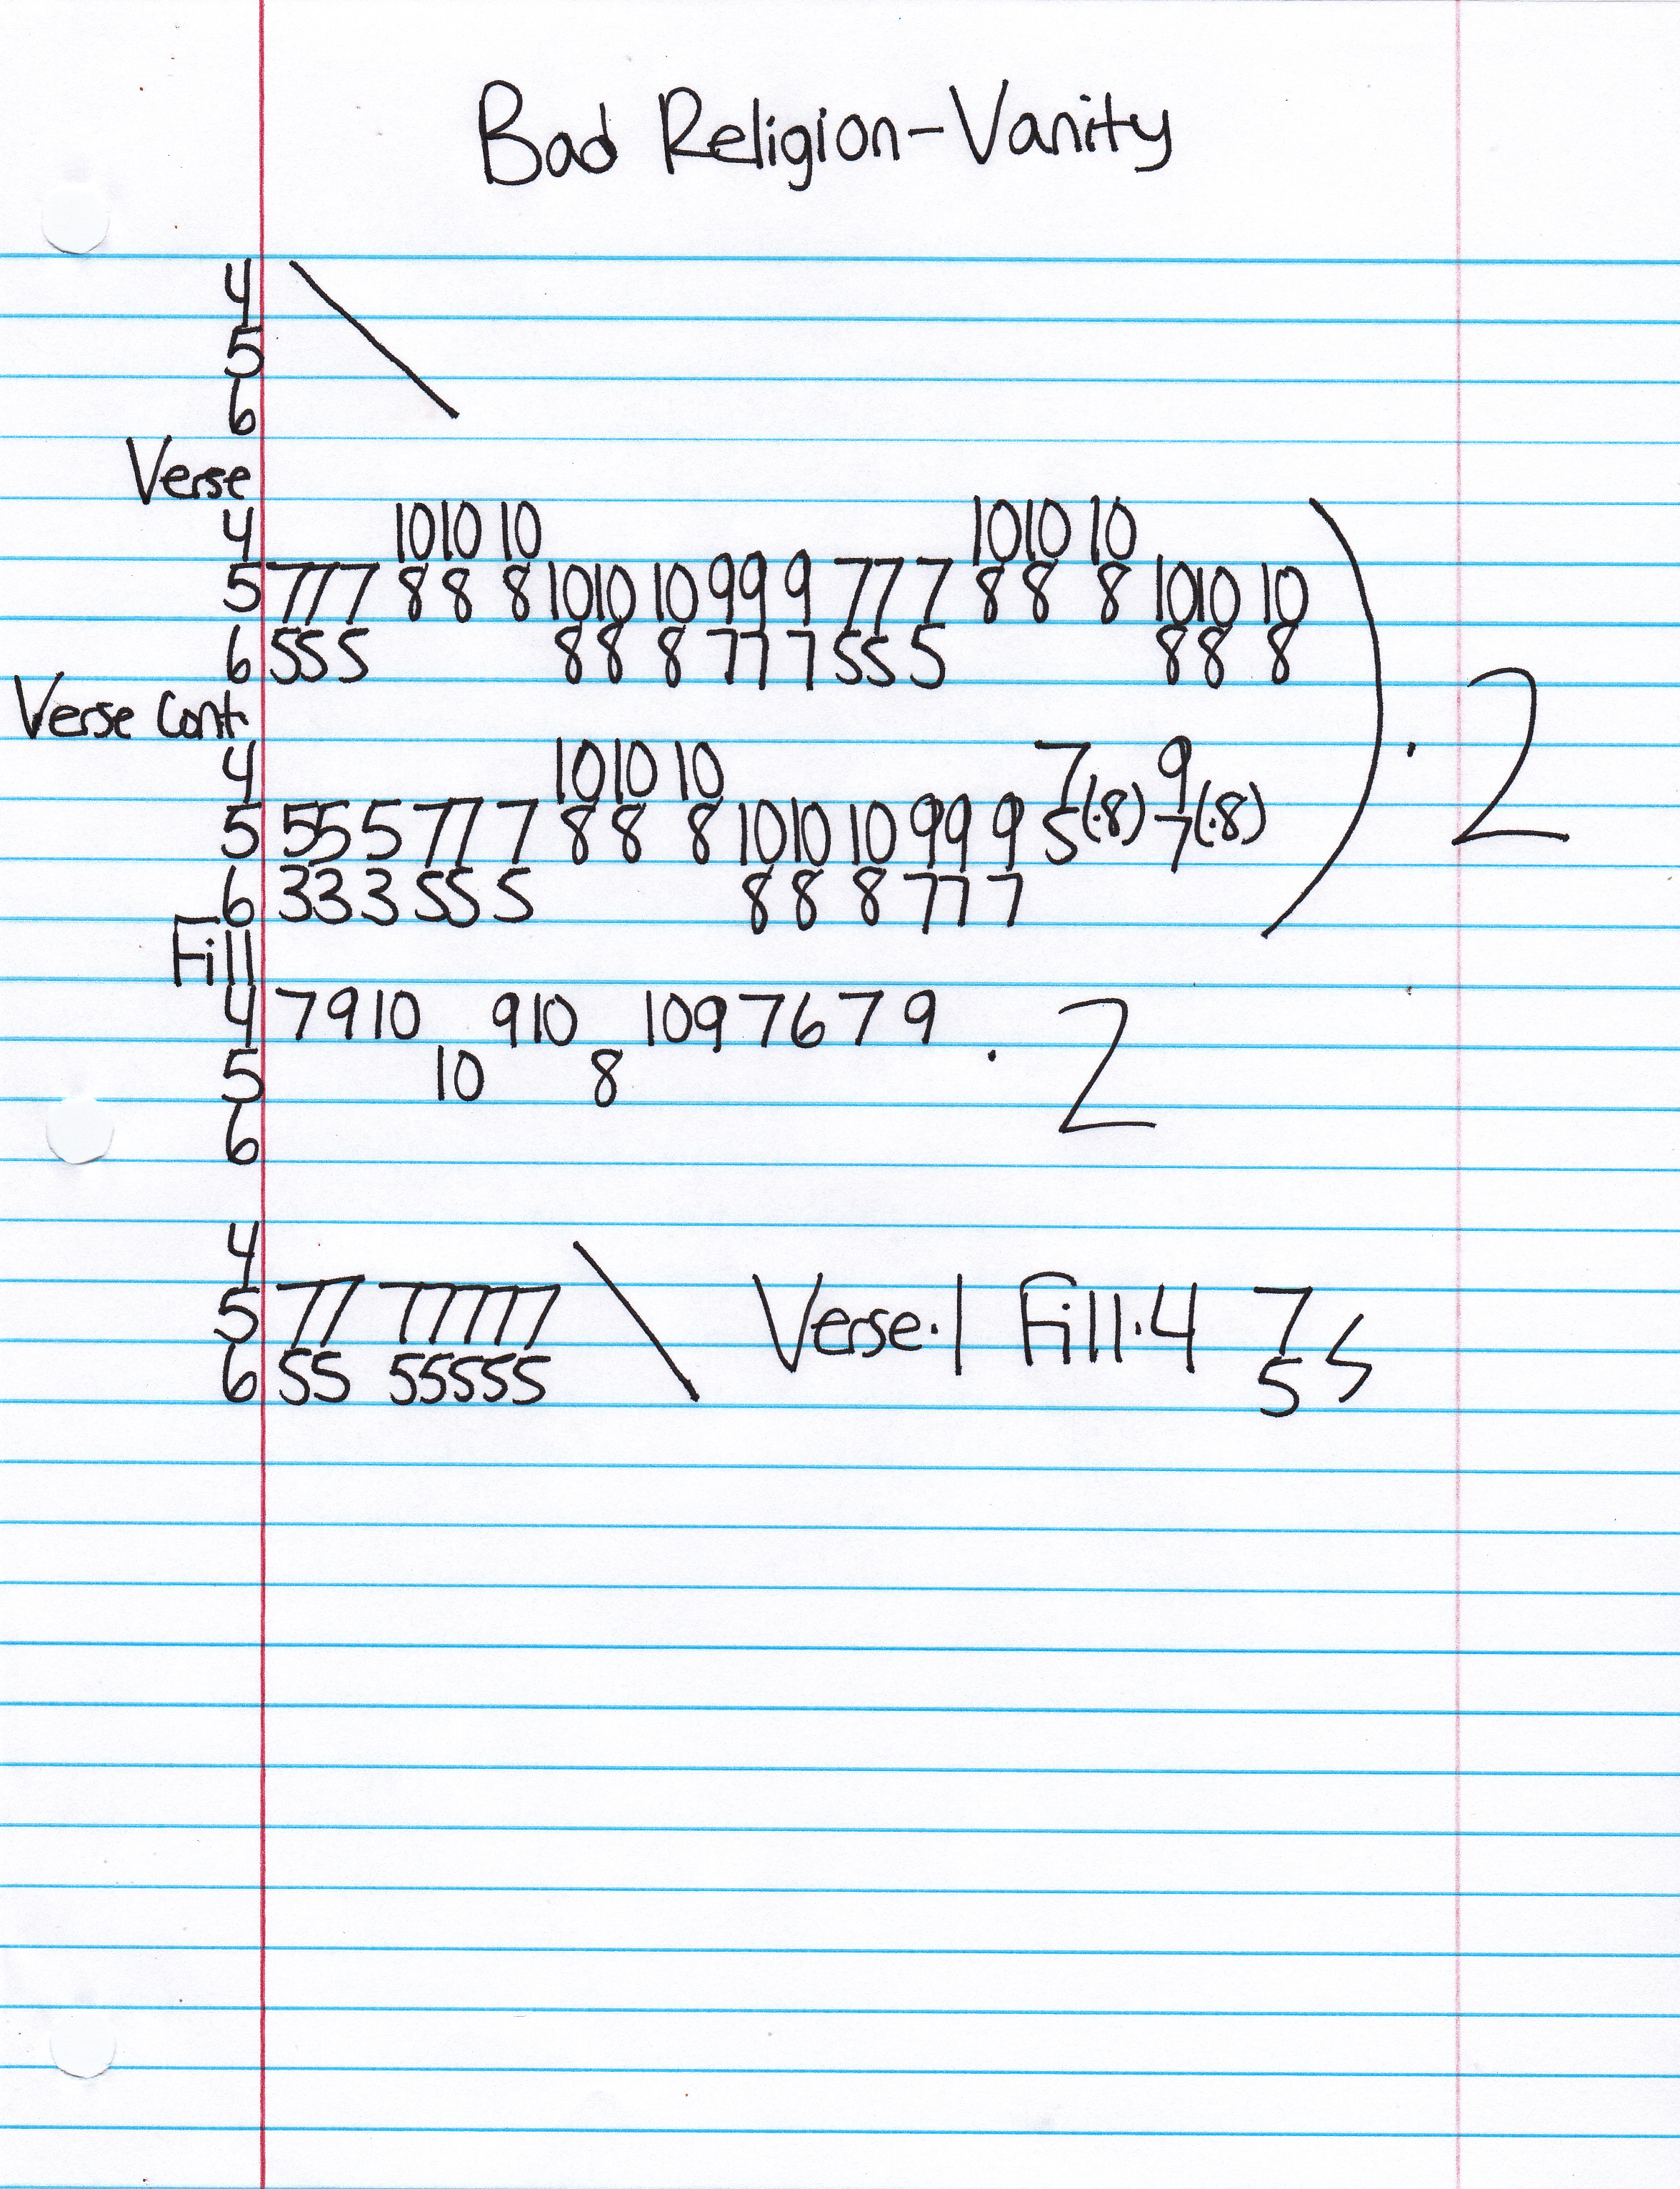 Bad Religion-Vanity
4 \
5
6
Verse
4 1010 10 1010 10
5 777 8 8 8 1010 10 999 777 8 8 8 1010 10
6 555 88 8 777 555 88 8
Verse Cont.
4 1010 10 7 9
5 555 777 8 8 8 1010 10 999 5(·8) 7(·8)
6 333 555 8 8 8 777
) · 2
Fill
4 7 9 10 9 10 10 9 7 6 7 9
5 10 8 · 2
6
4
5 77 77777 \ Verse·1 Fill·4 7
6 55 55555 5